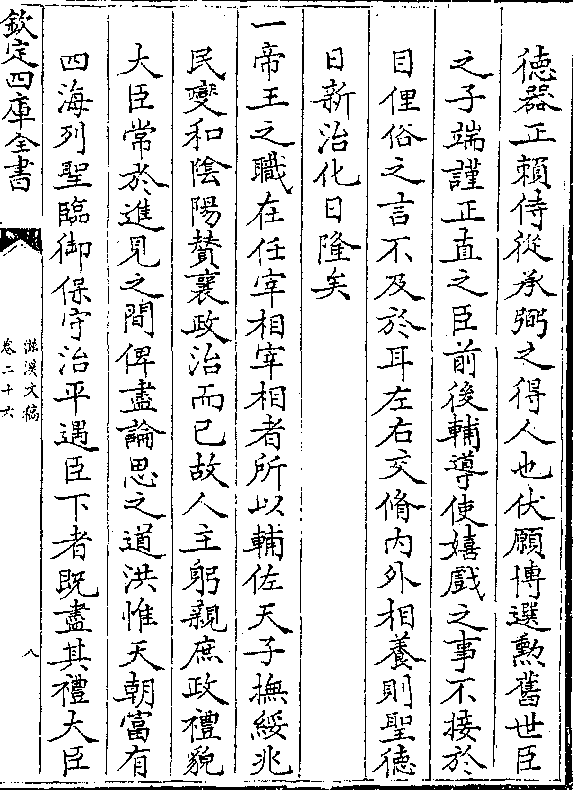 徳器正賴侍從承弼之得人也伏願博選勲舊世臣
之子端謹正直之臣前後輔導使嬉戲之事不接於
目俚俗之言不及於耳左右交脩内外相養則聖徳
日新治化日隆矣
一帝王之職在任宰相宰相者所以輔佐天子撫綏兆
民變和隂陽賛襄政治而已故人主躬親庶政禮貌
大臣常於進見之間俾盡論思之道洪惟天朝富有
四海列聖臨御保守治平遇臣下者既盡其禮大臣
欽定四庫全書
滋溪文稿
卷二十六
八